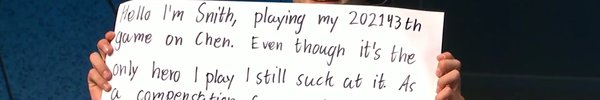 Hello I'm Snith, playing my 202143th
game on Chen. Even though it's the
only hero I play I still suck at it. As
a